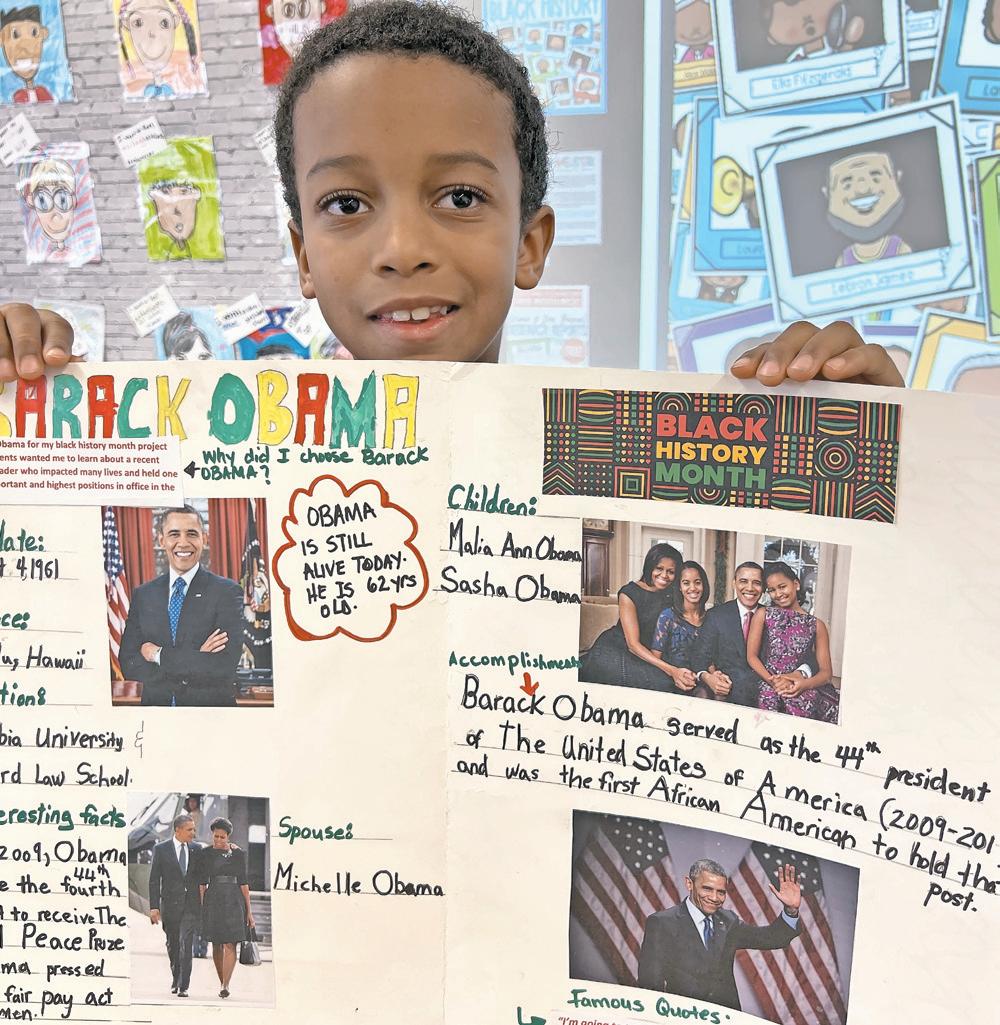 BLACK HISTORY
Ella Fitzgerald
LeBron James
BARACK OBAMA
BLACK
HISTORY
MONTH
Obama for my black history month project
ents wanted me to learn about a recent
ader who impacted many lives and held one
portant and highest positions in office in the
Why did I choose Barack
OBAMA?
OBAMA
IS STILL
ALIVE TODAY.
HE IS 62 YRS
OLD.
late:
4, 1961
ce:
lu, Hawaii
tion:
bia University &
rd Law School.
eresting facts
2009, Obama
44th
e the fourth
A to receive The
l Peace Prize
ma pressed
fair pay act
men.
Spouse:
Michelle Obama
Children:
Malia Ann Obama
Sasha Obama
Accomplishments
Barack Obama served as the 44th president
of The United States of America (2009-201
and was the first African American to hold tha
post.
Famous Quotes:
"I'm going to